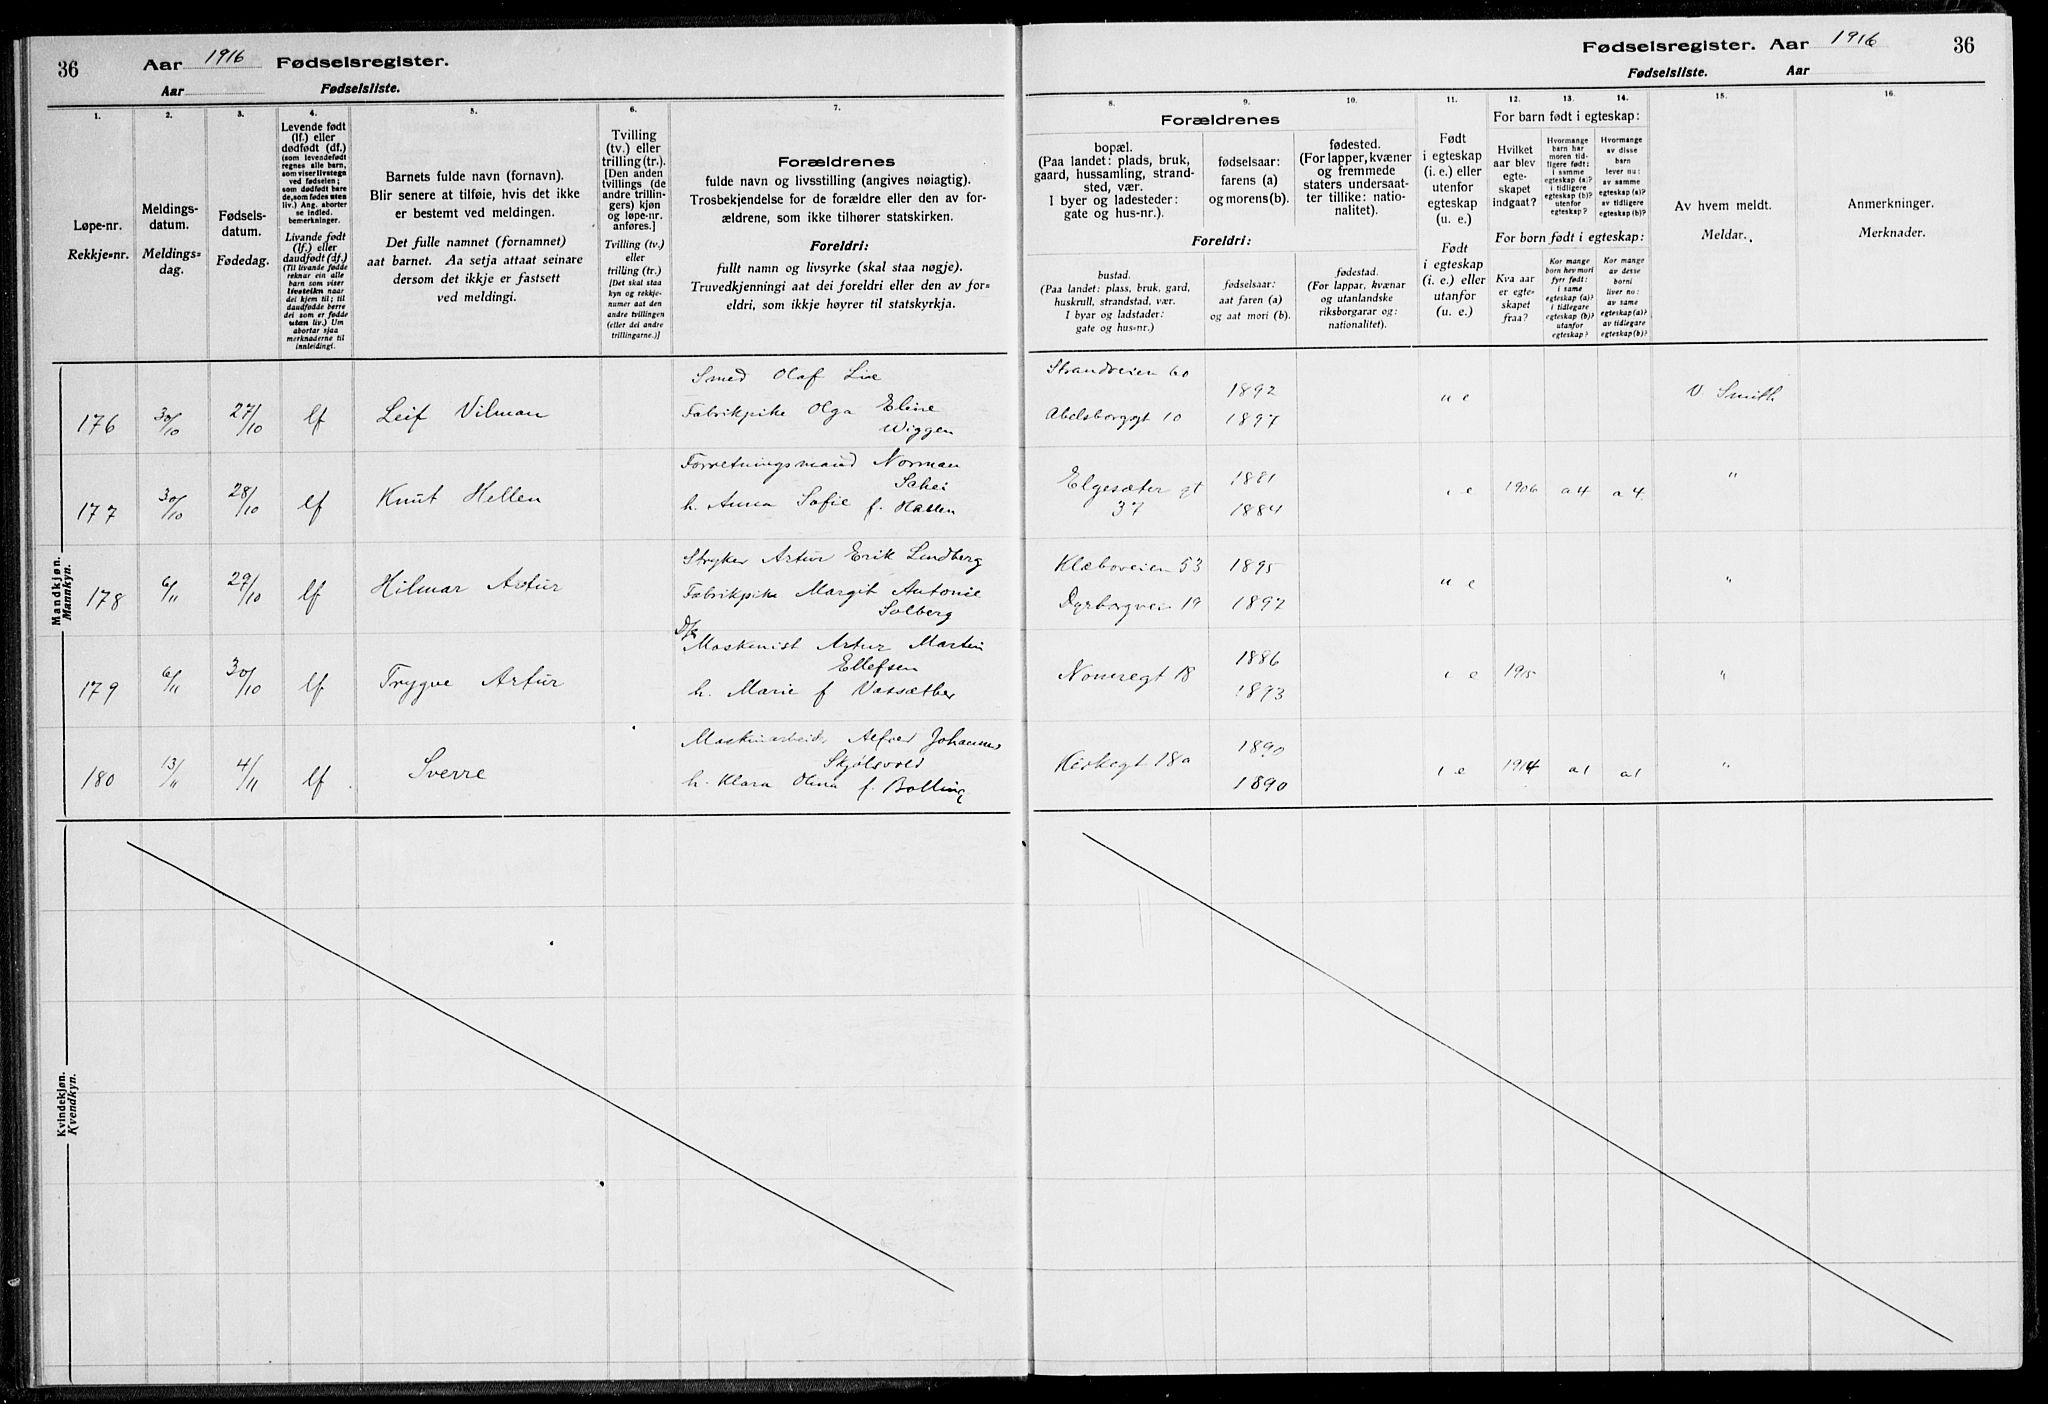 36 Aar 1916 Fødselsregister.
Aar Fødselsliste.
Fødselsregister. Aar 1916 36
Fødselsliste. Aar
1. 2. 3. 4. 5. 6. 7.
Løpe-nr.
Rekkje=nr.
Meldings-
datum.
Meldings=
dag.
Fødsels-
datum.
Fødedag.
Levende født
(lf.) eller
dødfødt (df.)
(som levendefødt
regnes alle barn,
som viser livstegn
ved fødselen;
som dødfødt bare
de, som fødes uten
liv.) Ang. aborter
se indled.
bemerkninger.
Livande født
(lf.) eller
daudfødt (df.)
(Til livande fødde
reknar ein alle
barn som viser
livsteikn naar
dei kjem til; til
daudfødde berre
dei som er fødde
utan liv.) Um
abortar sjaa
merknaderne til
innleidingi.
Barnets fulde navn (fornavn).
Blir senere at tilføie, hvis det ikke
er bestemt ved meldingen.
Det fulle namnet (fornamnet)
aat barnet. Aa setja attaat seinare
dersom det ikkje er fastsett
ved meldingi.
Tvilling
(tv.) eller
trilling (tr.).
[Den anden
tvillings (de
andre trillin-
gers) kjøn
og løpe-nr.
anføres.]
Tvilling (tv.)
eller
trilling (tr.)
[Det skal staa
kyn og rekkje-
numer aat den
andre tvillingen
(eller dei andre
trillingarne.)]
Forældrenes
fulde navn og livsstilling (angives nøiagtig).
Trosbekjendelse for de forældre eller den av for-
ældrene, som ikke tilhører statskirken.
Foreldri:
fullt namn og livsyrke (skal staa nøgje).
Truvedkjenningi aat dei foreldri eller den av for=
eldri, som ikkje høyrer til statskyrkja.
8. 9. 10. 11. 12. 13. 14. 15. 16.
Forældrenes
bopæl.
(Paa landet: plads, bruk,
gaard, hussamling, strand-
sted, vær.
I byer og ladesteder:
gate og hus-nr.).
fødselsaar:
farens (a)
og morens (b).
fødested.
(For lapper, kvæner
og fremmede
staters undersaat-
ter tillike: natio-
nalitet).
Foreldri:
bustad.
(Paa landet: plass, bruk, gard,
huskrull, strandstad, vær.
I byar og ladstader:
gate og hus=nr.)
fødselsaar:
aat faren (a)
og aat mori (b).
fødestad.
(For lappar, kvænar
og utanlandske
riksborgarar og:
nationalitet).
Født
i egteskap
(i. e.) eller
utenfor
egteskap
(u. e.)
Født
i egteskap
(i. e.) eller
utanfor
(u. e.)
For barn født i egteskap:
Hvilket
aar blev
egte-
skapet
indgaat?
Hvormange
barn har
moren tid-
ligere født:
i samme
egteskap (a)?
i tidligere
egteskap (b)?
utenfor
egteskap?
Hvormange
av disse
barn
lever nu:
av samme
egteskap (a)?
av tidligere
egteskap (b)?
For born født i egteskap:
Kva aar
er egte-
skapet
fraa?
Kor mange
born hev mori
fyrr født:
i same
egteskap (a)?
i tidlegare
egteskap (b)?
utanfor
egteskap?
Kor mange
av desse
borni
liver no:
av same
egteskap (a)?
av tidlegare
egteskap (b)?
Av hvem meldt.
Meldar.
Anmerkninger.
Merknader.
Mandkjøn.
Mannkyn.
176 30/10 27/10 lf Leif Vilman Smed Olaf Lie Strandveien 60 1892 u e V. Smith
Fabrikpike Olga Eline Wiggen Abelsborggt 10 1897
177 30/10 28/10 lf Knut Hellen Forretningsmand Norman Schei Elgesæter gt 37 1881 i e 1906 a 4 a 4 "
h. Anna Sofie f. Hallen 1884
178 6/11 29/10 lf Hilmar Artur Stryker Artur Erik Lundberg Klæboveien 53 1895 u e "
Fabrikpike Margit Antonie Solberg Dyrborgvei 19 1892
179 6/11 30/10 lf Trygve Artur Maskinist Artur Martin Ellefsen Nonnegt 18 1886 i e 1915 "
h. Marie f Vassæther 1893
180 13/11 4/11 lf Sverre Maskinarbeid. Alfred Johannes Skjølsvold Kirkegt 18a 1890 i e 1914 a 1 a 1 "
h. Klara Olina f. Bolling 1890
Kvindekjøn.
Kvendkyn.